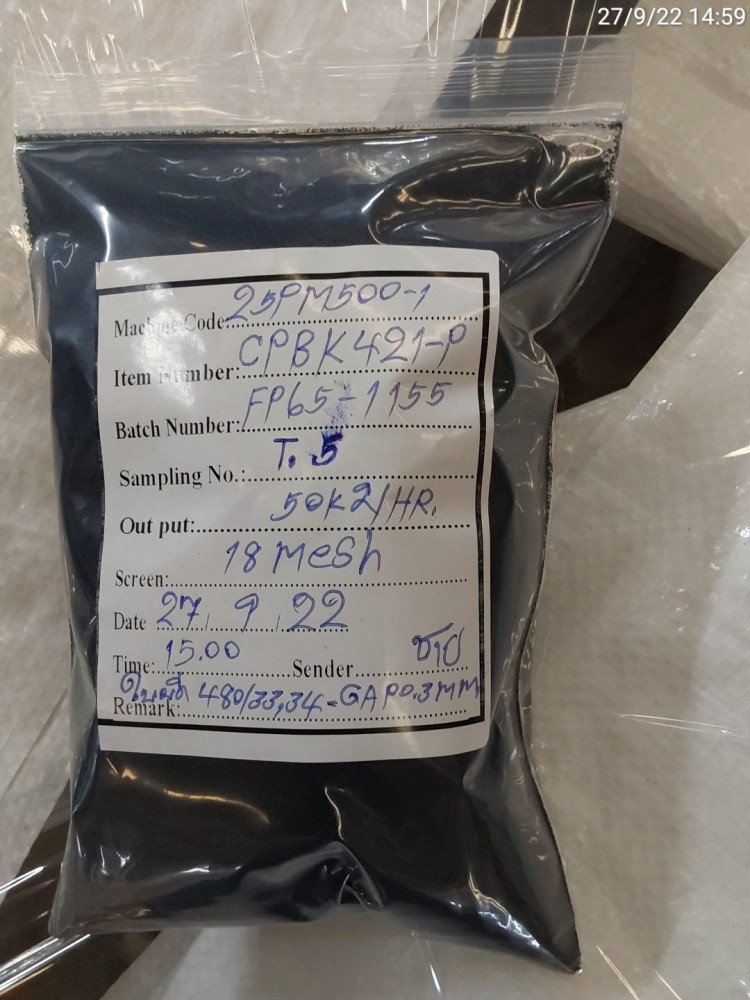 27/9/22 14:59
Machine Code: 25PM500-1
Item Number: CPBK421-P
Batch Number: FP65-1155
Sampling No.: T. 5
Out put: 50K2/HR.
Screen: 18 Mesh
Date 27 / 9 / 22
Time: 15.00 Sender ชาย
Remark: ใบมีด 480/33,34-GAP0.3MM